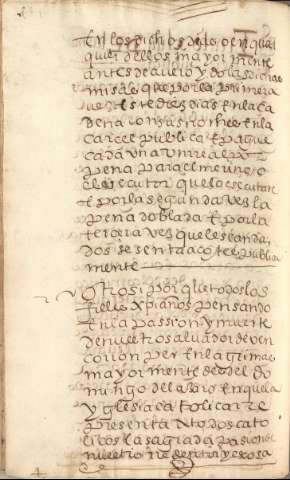 En los dichos dias o en qual
quier dellos mayormente
antes de auer oydo las dichas
misas que por la primera
vez este diez dias en la ca
dena con sus noches en la
carcel publica e pague
cada vna vn real de
pena para el
executor que lo executare
e por la segunda vez la
pena doblada e por la
tercera vez que les sean da
dos sesenta açotes publica
mente
Otrosi por que todos los
fieles xpianos pensando
en la passion y muerte
de nuestro saluador deven
llorar en lagrimas
mayormente desde el do
mingo de laçaro en que la
yglesia catolica rre
presenta a todos catho
licos la sagrada pasion de
nuestro rredentor y es cosa